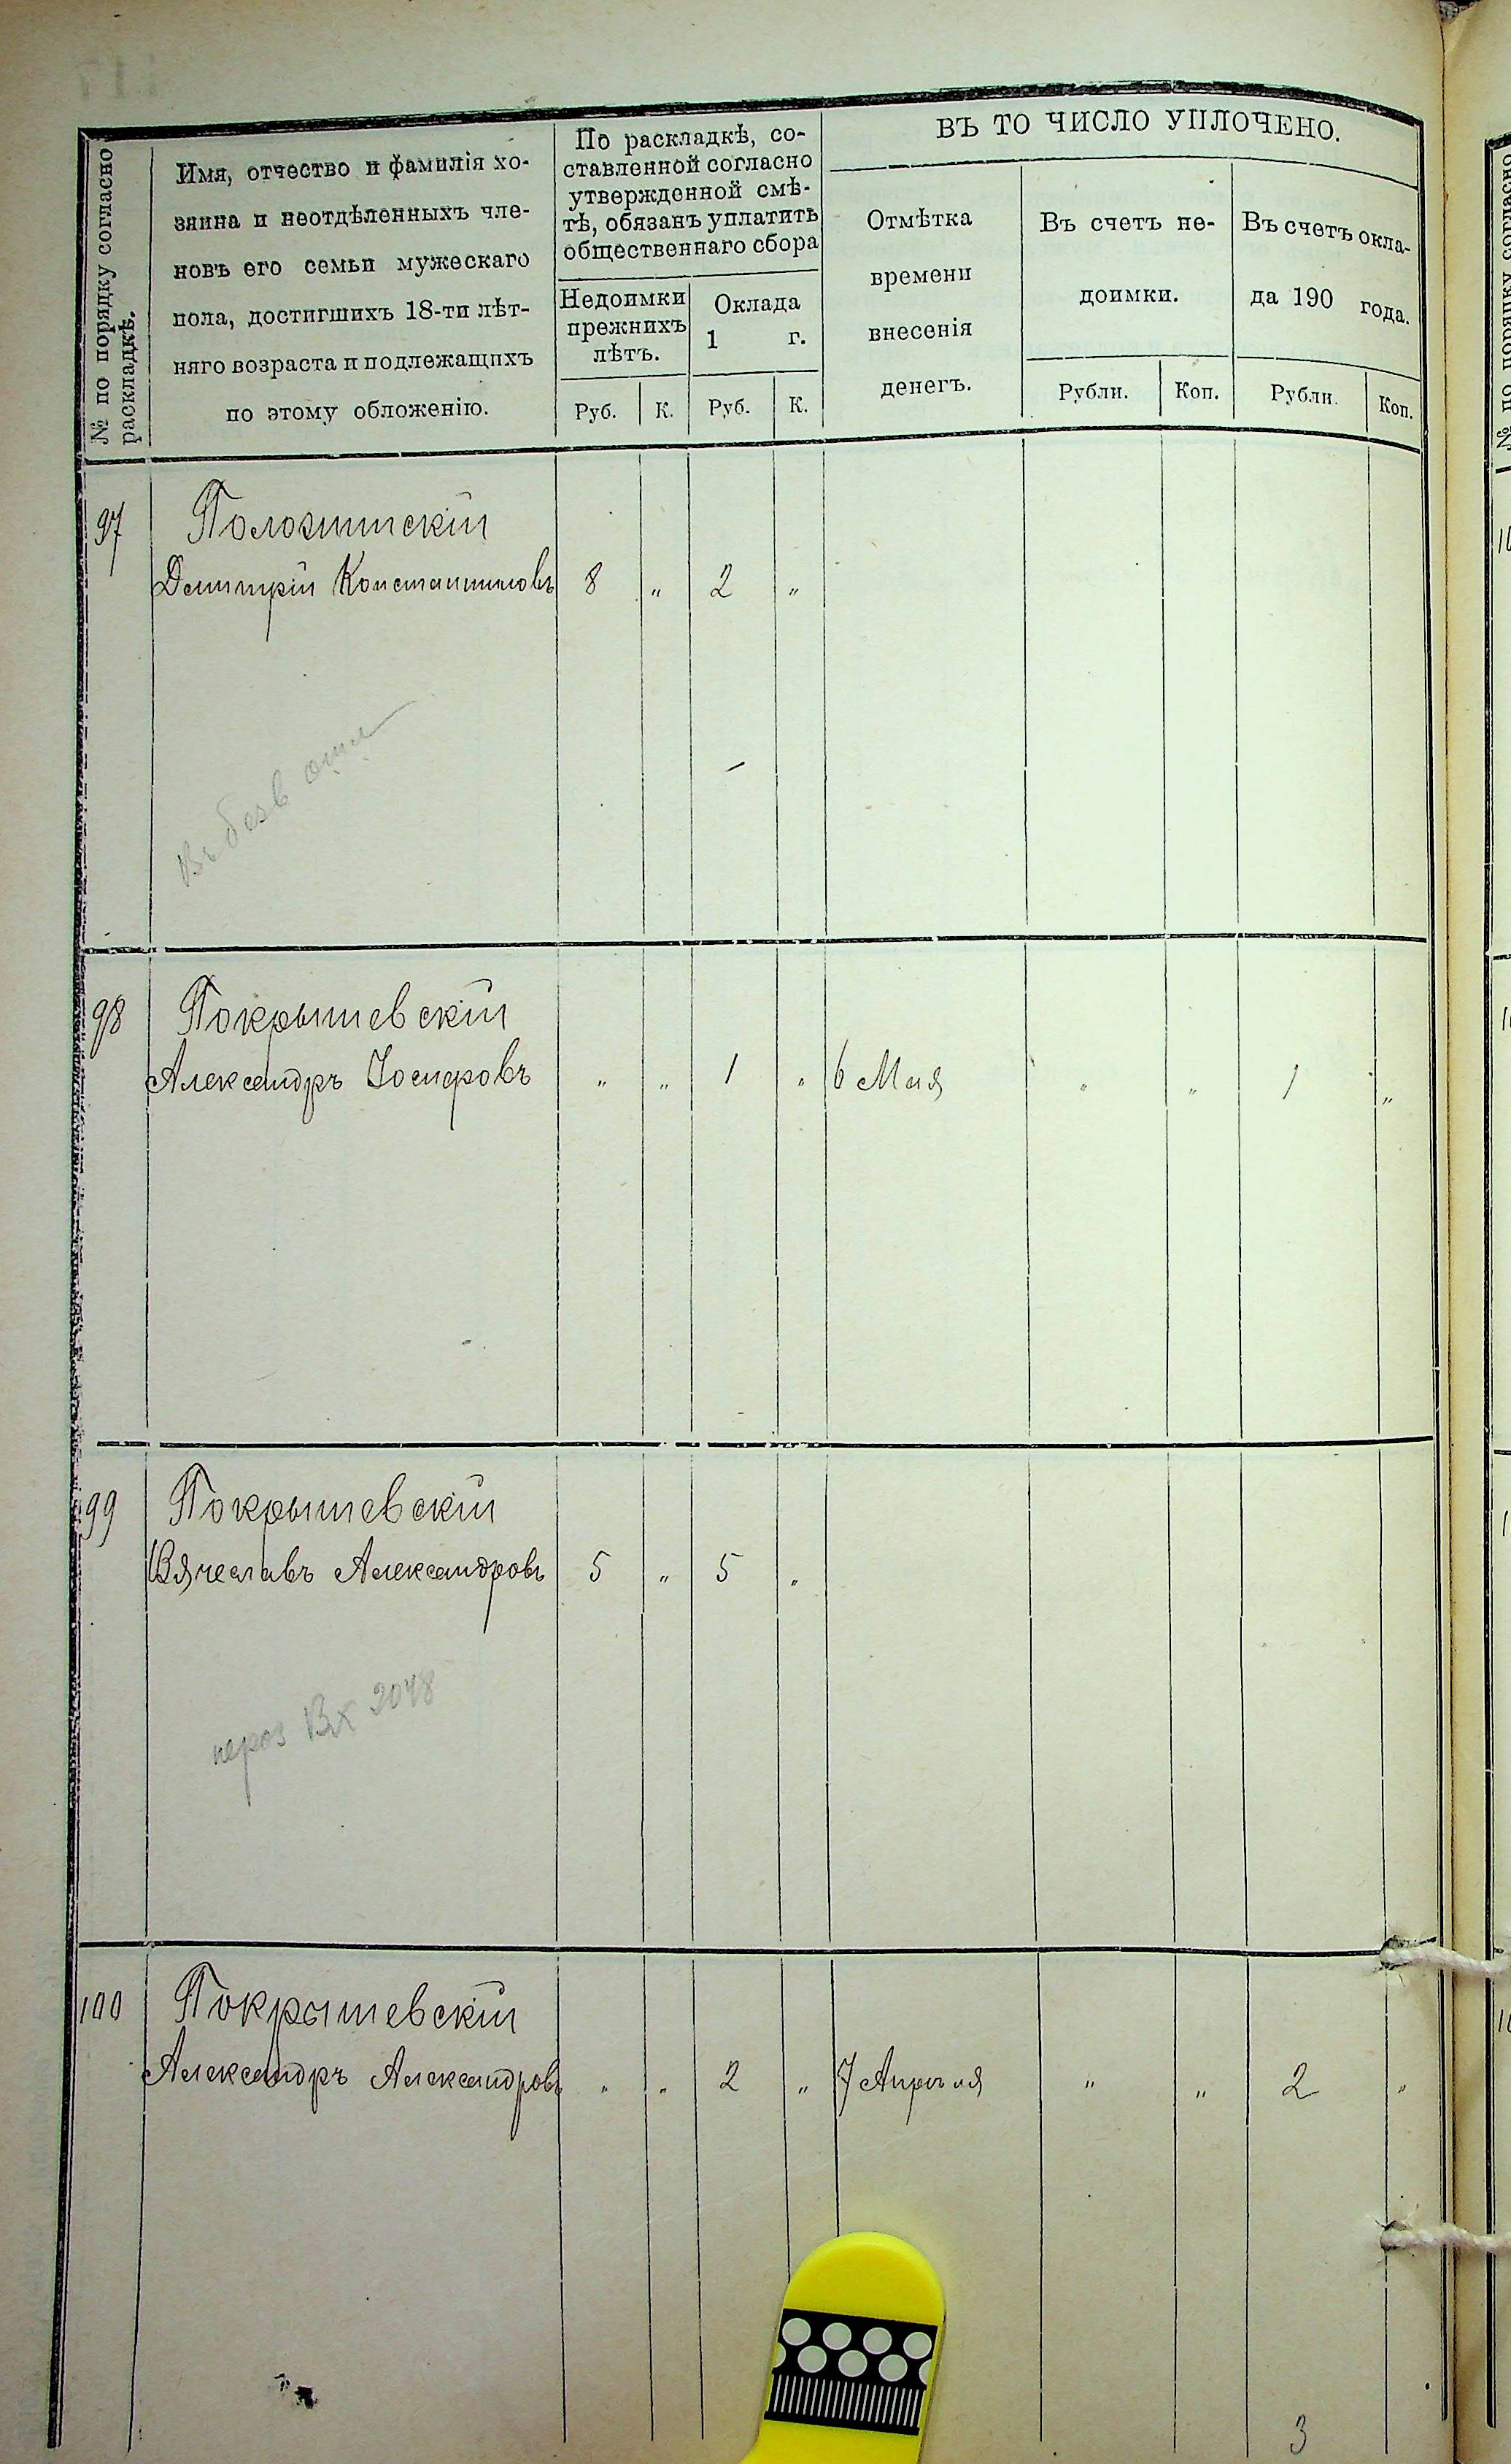 № по порядку согласно
раскладкѣ.
Имя, отчество и фамилія хо-
зяина и неотдѣленныхъ чле-
новъ его семьи мужескаго
пола, достигшихъ 18-ти лѣт-
няго возраста и подлежащихъ
по этому обложенію.
По раскладкѣ, со-
ставленной согласно
утвержденной смѣ-
тѣ, обязанъ уплатить
общественнаго сбора
Недоимки
прежнихъ
лѣтъ.
Оклада
1 г.
Руб. К. Руб. К.
ВЪ ТО ЧИСЛО УПЛОЧЕНО.
Отмѣтка
времени
внесенія
денегъ.
Въ счетъ не-
доимки.
Въ счетъ окла-
да 190 года.
Рубли. Коп. Рубли. Коп.
97
Дмитрій Константиновъ 8 „ 2 „
Въ безв
98 Покрышевскій
Александръ Іосифовъ „ „ 1 „ 6 Мая „ „ 1 „
99 Покрышевскій
Вячеславъ Александровъ 5 „ 5 „
Вх 2048
100 Покрышевскій
Александръ Александровъ „ „ 2 „ 7 Апрѣля „ „ 2 „
3